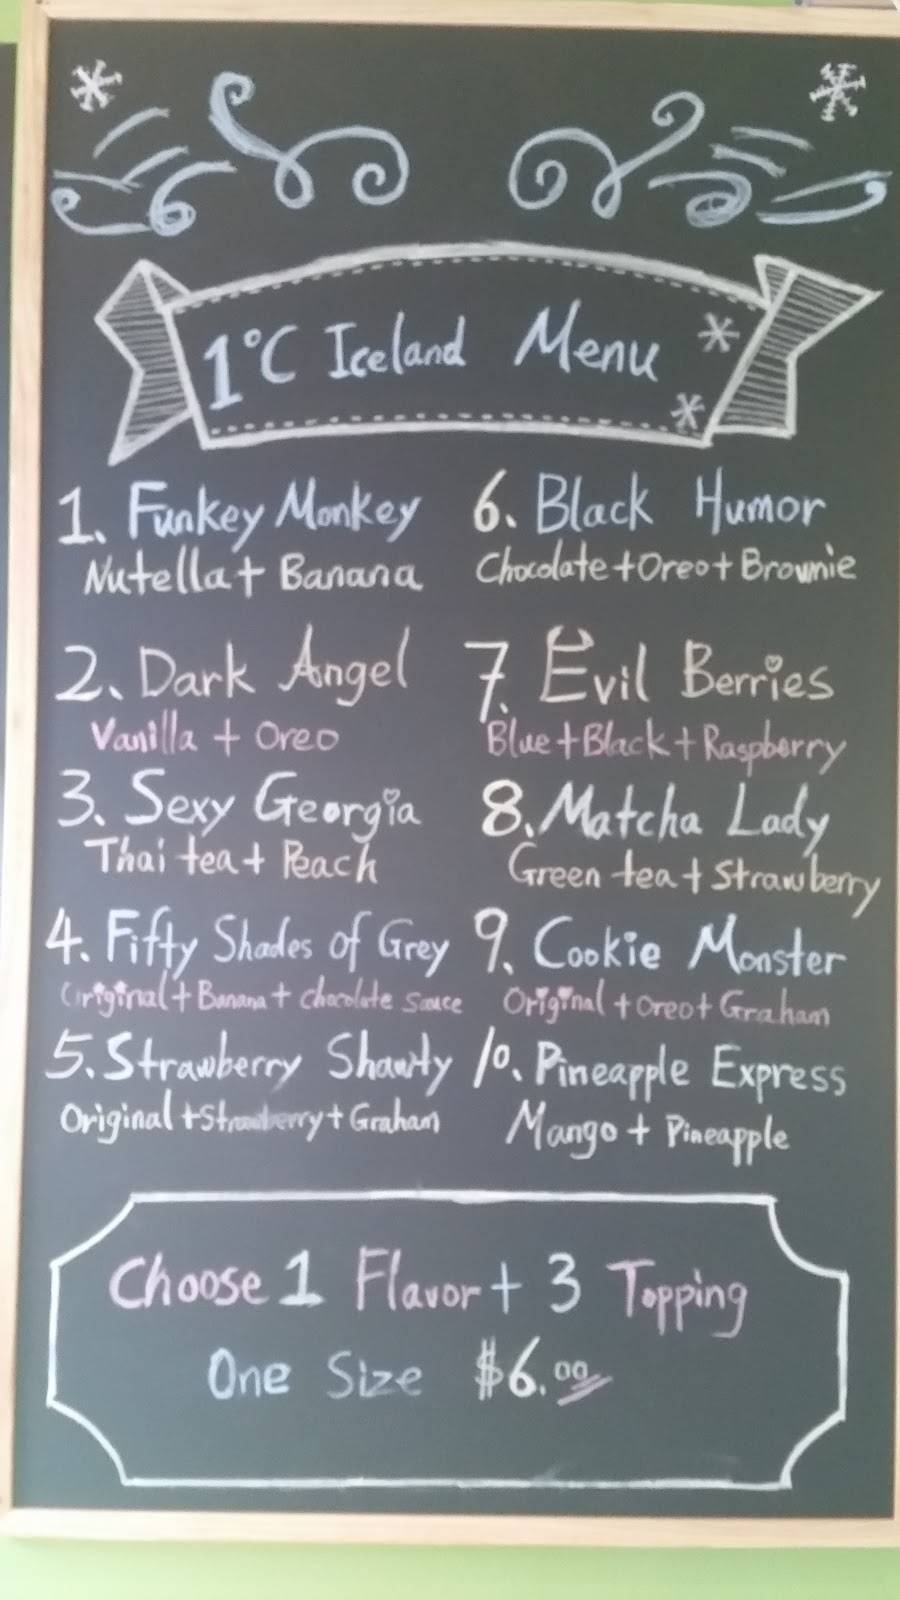 1°C Iceland Menu
1. Funkey Monkey
Nutella + Banana
2. Dark Angel
Vanilla + Oreo
3. Sexy Georgia
Thai tea + Peach
4. Fifty Shades of Grey
Original + Banana + Chocolate Sauce
5. Strawberry Shawty
Original + Strawberry + Graham
6. Black Humor
Chocolate + Oreo + Brownie
7. Evil Berries
Blue + Black + Raspberry
8. Matcha Lady
Green tea + Strawberry
9. Cookie Monster
Original + Oreo + Graham
10. Pineapple Express
Mango + Pineapple
Choose 1 Flavor + 3 Topping
One Size $6.00